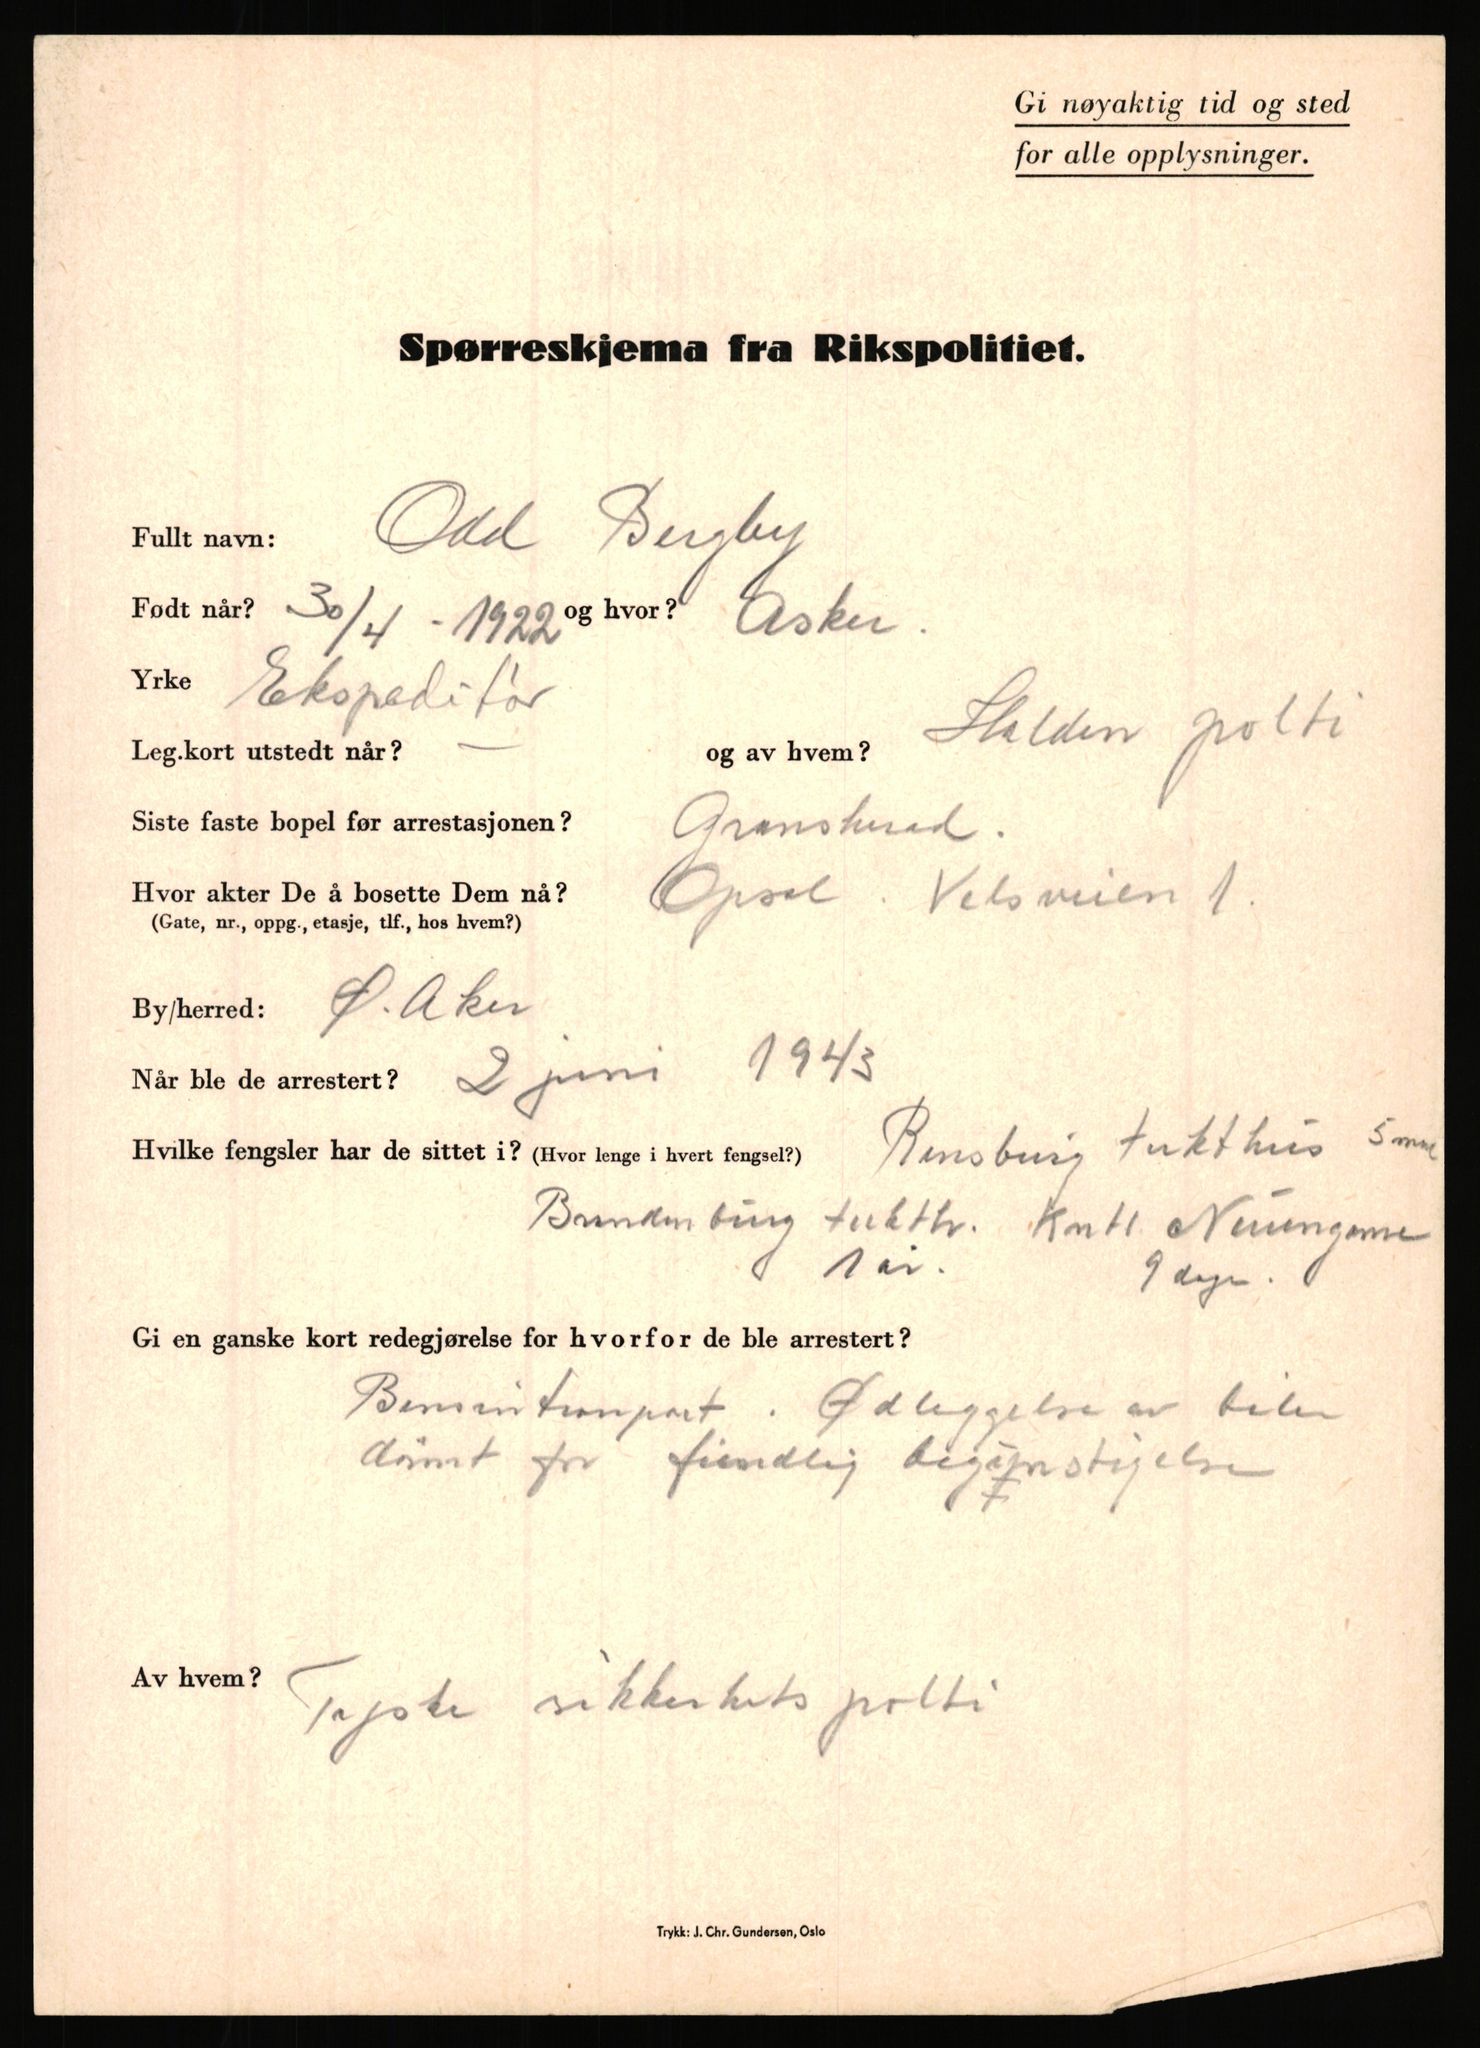 Gi nøyaktig tid og sted
for alle opplysninger.
Spørreskjema fra Rikspolitiet.
Fullt navn: Odd Bergby
Født når? 30/4 - 1922 og hvor? Asker.
Yrke Ekspeditør
Leg.kort utstedt når? — og av hvem? Halden polti
Siste faste bopel før arrestasjonen? Gransherad.
Hvor akter De å bosette Dem nå? Opsal. Velsveien 1.
(Gate, nr., oppg., etasje, tlf., hos hvem?)
By/herred: Ø. Aker
Når ble de arrestert? 2 juni 1943
Hvilke fengsler har de sittet i? (Hvor lenge i hvert fengsel?) Rensburg tukthus 5 mnd
Brandenburg tukth. Kntl. Neuengame
1 år. 9 dager.
Gi en ganske kort redegjørelse for hvorfor de ble arrestert?
Bensintransport. Ødleggelse av biler
dømt for fiendlig begünstigelse
Av hvem? Tyske sikkerhets polti
Trykk: J. Chr. Gundersen, Oslo